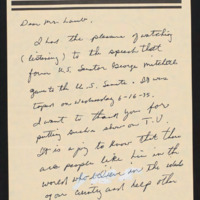 Dear Mr. Lamb.
I had the pleasure of watching
(listening) to the speech that
former U.S. Senator George Mitchell
gave to the U.S. Senate. It was
taped on Wednesday 6-16-95.
I want to thank you for
putting such a show on T.V.
It is a joy to know that there
are people like him in the
world in the whole
of our country and help other